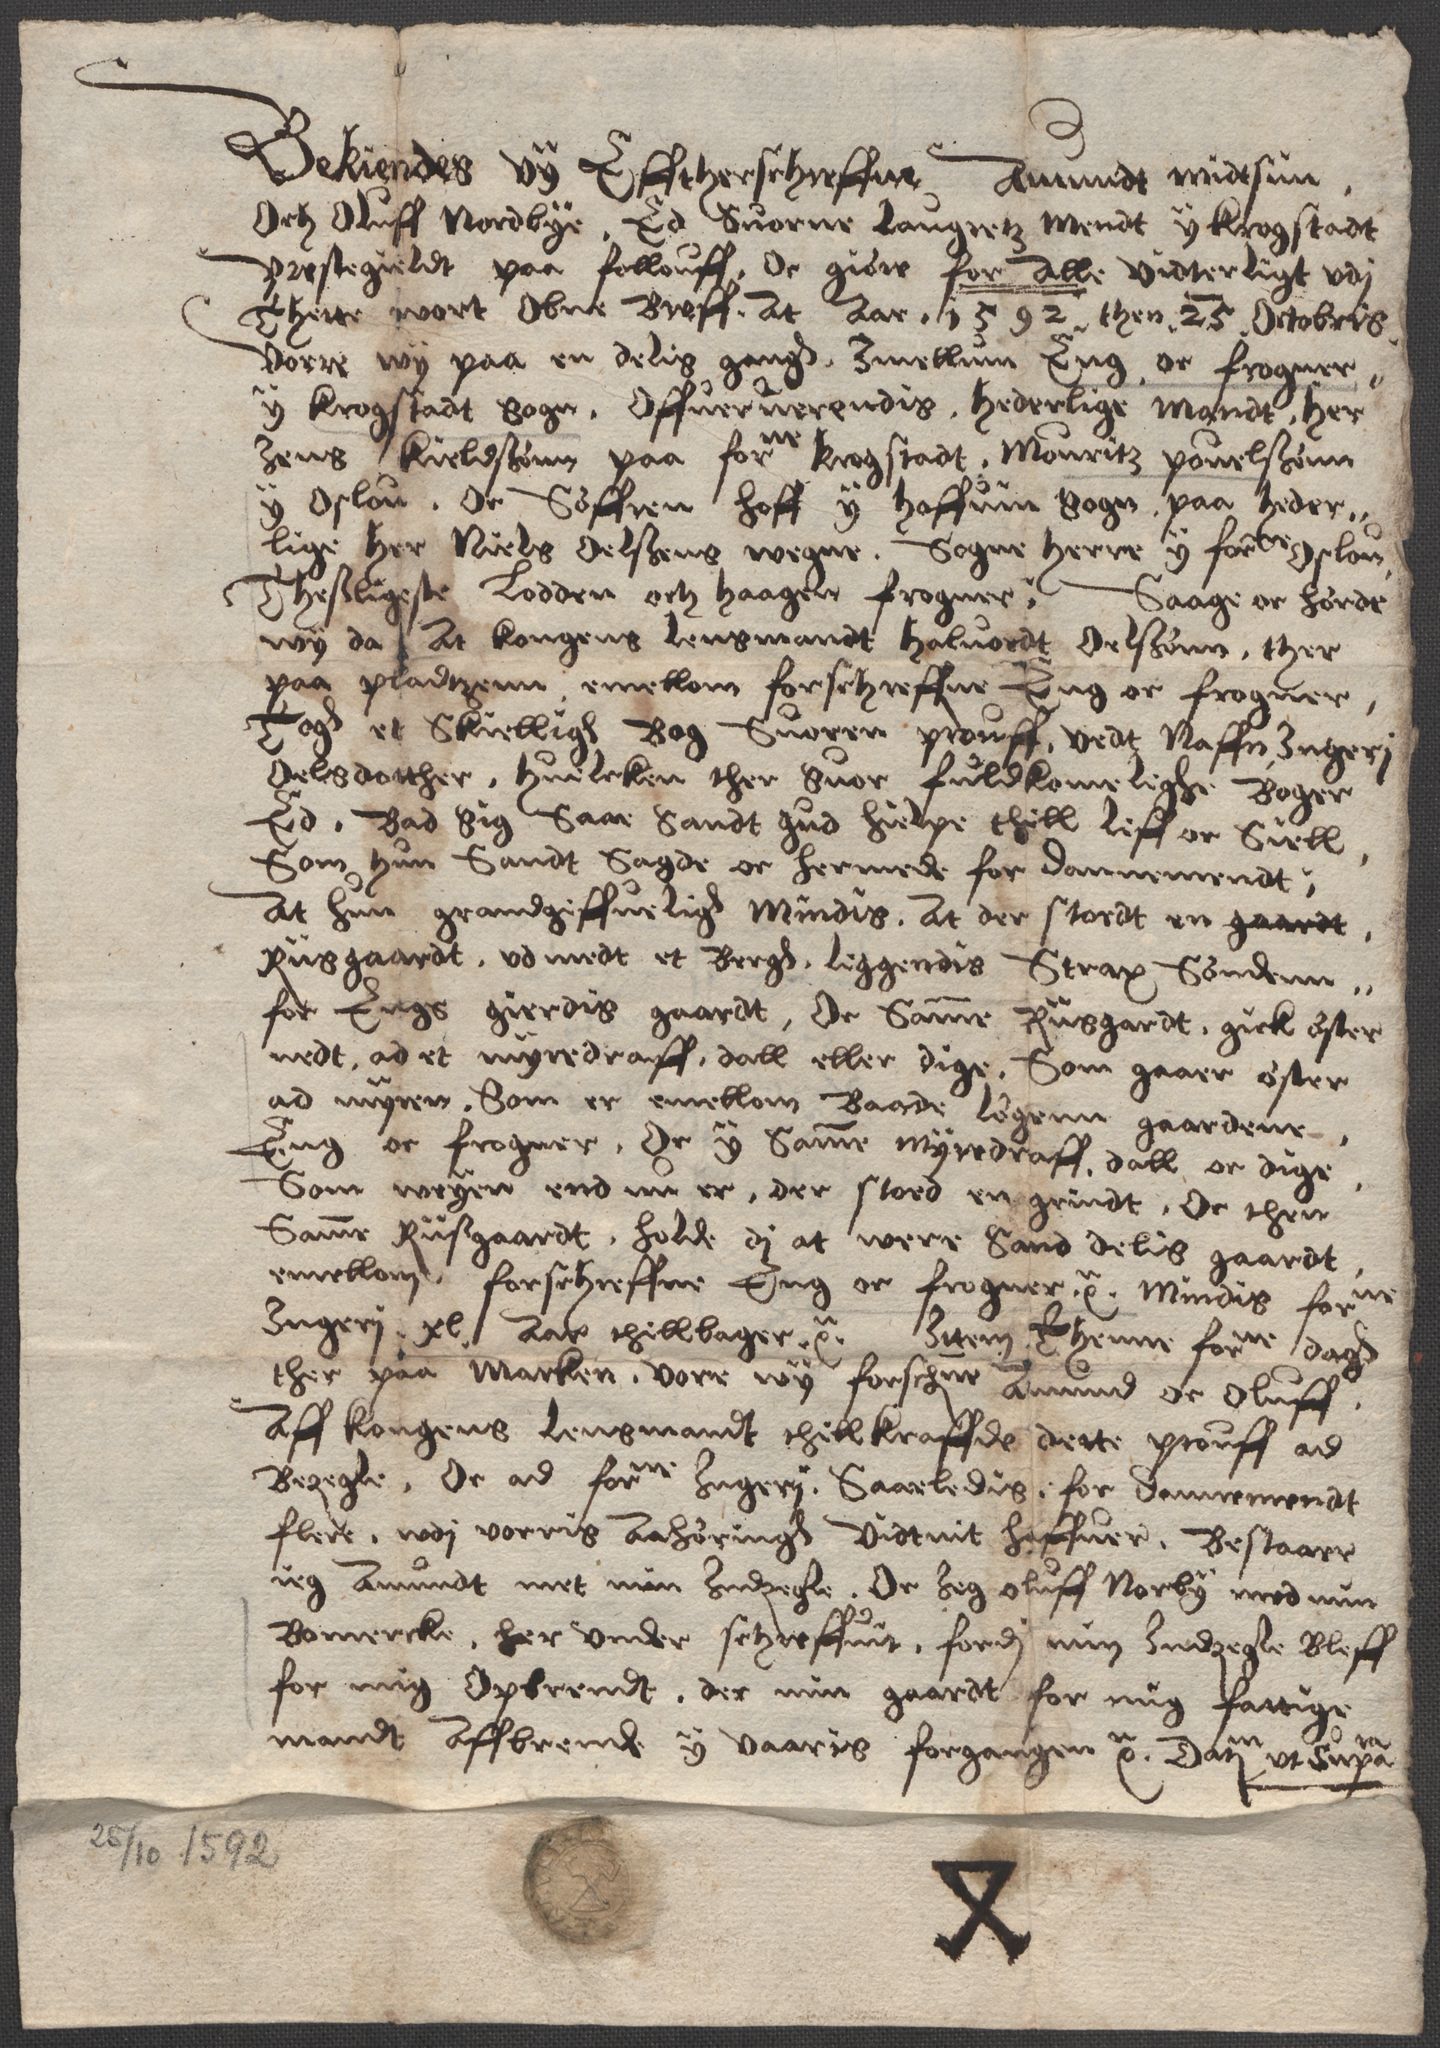 Bekiendes vÿ Efftherschreffne Amundt midtsun,
Och Oluff Nordbÿe, Ed Suorne Laugretz Mendt ÿ Krogstadt
Prestegieldt paa follouff, Oc giøre for alle vidterligt vdj
Thette wort Obne Breff. At Aar. 1592. then. 25. Octobris.
Vorre wÿ paa en delis gangh. Imellum Eng, oc frogner,
ÿ Krogstadt Sogn. Offueruerendis. hederlige Mandt, Her
Jens Kieldssønn paa forne Krogstadt, Mouritz pouelssønn
ÿ Oslou. Oc Søffren hoff ÿ haffuin Sogn, paa heder,,
lige Her Niels Oelssens wegne. Sogne Herre ÿ forne Oslou,
Thessligeste Lodden och haagen frogner, Saage oc hørde
wÿ da At kongens Lensmandt haluordt Oelssønn, ther
paa pladtzenn, emellom forschreffne Eng oc frogner,
Togh et Skielligh Bog Suoren prouff, vedt Naffn Ingerj
Oelsdotther, huilcken ther Suor fuldkomelighe Boger
Ed, Bad Sig Saae Sandt gud hielpe thill Leff oc Siell,
Som hun Sandt Sagde oc hermede for dannemendt,
At hun grandgeffueligh Mindis. At der stordt en gaardt,
Riisgaardt, vd medt et Bergh. leggendis Strax Søndenn,,
for Engs gierdis gaardt, Oc Samme Riisgardt, gick øster
nedt, ad et myredraff, dall eller dige, Som gaaer øster
ad myren, Som er emellom Baade legenn gaardene,
Eng oc frogner, Oc ÿ Samme Myredraff, dall oc dige,
Som weyen end nu er, der stoed en grindt, Oc then
Samme Riissgaardt, holde dj at were Sand delis gaardt,
emellom, forschreffne Eng oc frogner. Mindis forne
Ingerj. xl. Aar thillbager. Ittem Thenne forne dagh
ther paa Marken, vore wÿ forschne Amund oc Oluff,
Aff kongens Lensmandt thillkraffde dette prouff ad
Bezegle, Oc ad forne Ingerj. Saaeledis, for dannemendt
flere, wdj vorris Aahøringh Vidtnit haffuer, Bestaaer
ieg Amundt met min Indzegle, Oc Jeg oluff Norbÿ med min
Bomercke, her vnder schreffuit, fordj min Indzegle Bleff
for mig Opbrendt, der min gaardt for mig fattige
mandt Affbrende ÿ vaaris forgangen. Datum vt Supra
25/10 1592